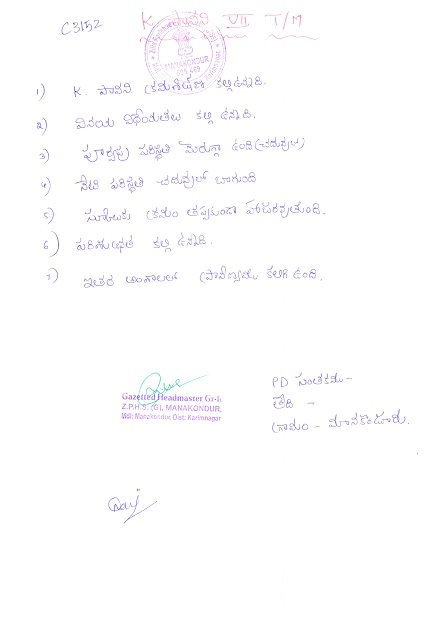 C3152
K. పావని VII T/M
MANAKONDUR
505 469
1) K. పావని క్రమశిక్షణ కల్గి ఉన్నది.
2) వినయ విధేయతలు కల్గి ఉన్నది.
3) పూర్వపు పరిస్థితి మెరుగ్గా ఉంది (చదువులో)
4) నేటి పరిస్థితి చదువులో బాగుంది
5) స్కూలుకు క్రమం తప్పకుండా హాజరవుతుంది.
6) పరిశుభ్రత కల్గి ఉన్నది.
7) ఇతర అంశాలలో ప్రావీణ్యము కలిగి ఉంది.
Gazetted Headmaster Gr-II
Z.P.H.S. (G), MANAKONDUR,
Mdl: Manakondur, Dist: Karimnagar
PD సంతకము -
తేది -
గ్రామం - మానకొండూరు.